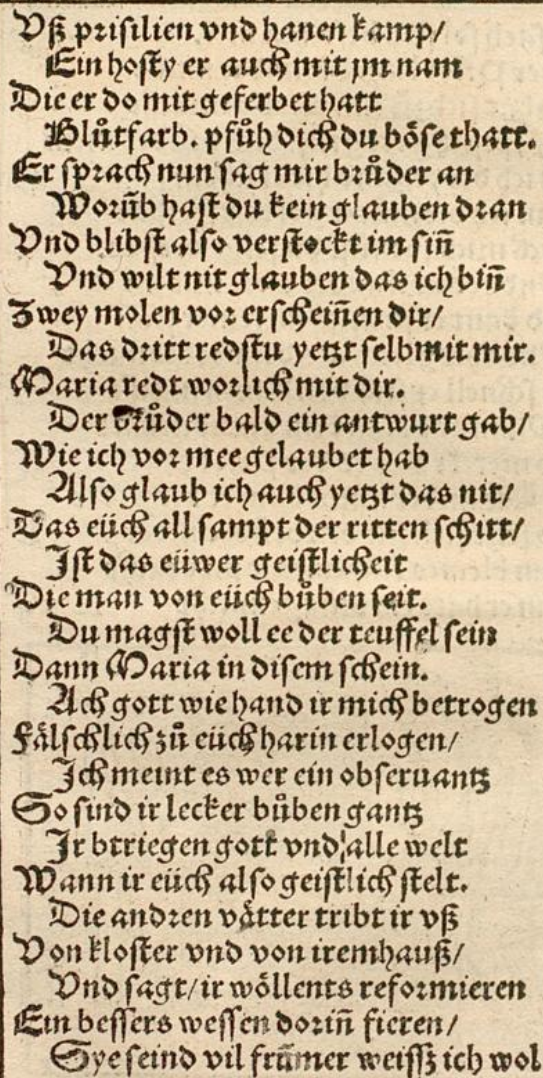 Vß prisilien vnd hanen kamp/
Ein hosty er auch mit jm nam
Die er do mit geferbet hatt
Blůtfarb. pfůh dich du böse thatt.
Er sprach nun sag mir brůder an
Worůb hast du kein glauben dran
Vnd blibst also verstockt im siñ
Vnd wilt nit glauben das ich biñ
Zwey molen vor erscheiñen dir/
Das dritt redstu yetzt selb mit mir.
Maria redt worlich mit dir.
Der brůder bald ein antwurt gab/
Wie ich vor mee gelaubet hab
Also glaub ich auch yetzt das nit/
Das eüch all sampt der ritten schitt/
Ist das eüwer geistlicheit
Die man von eüch bůben seit.
Du magst woll ee der teuffel sein
Dann Maria in disem schein.
Ach gott wie hand ir mich betrogen
Fälschlich zů eüch harin erlogen/
Ich meint es wer ein obseruantz
So sind ir lecker bůben gantz
Ir btriegen gott vnd alle welt
Wann ir eüch also geistlich stelt.
Die andren vätter tribt ir vß
Von kloster vnd von irem hauß/
Vnd sagt/ ir wöllents reformieren
Ein bessers wessen doriñ fieren/
Sye seind vil frümer weissz ich wol